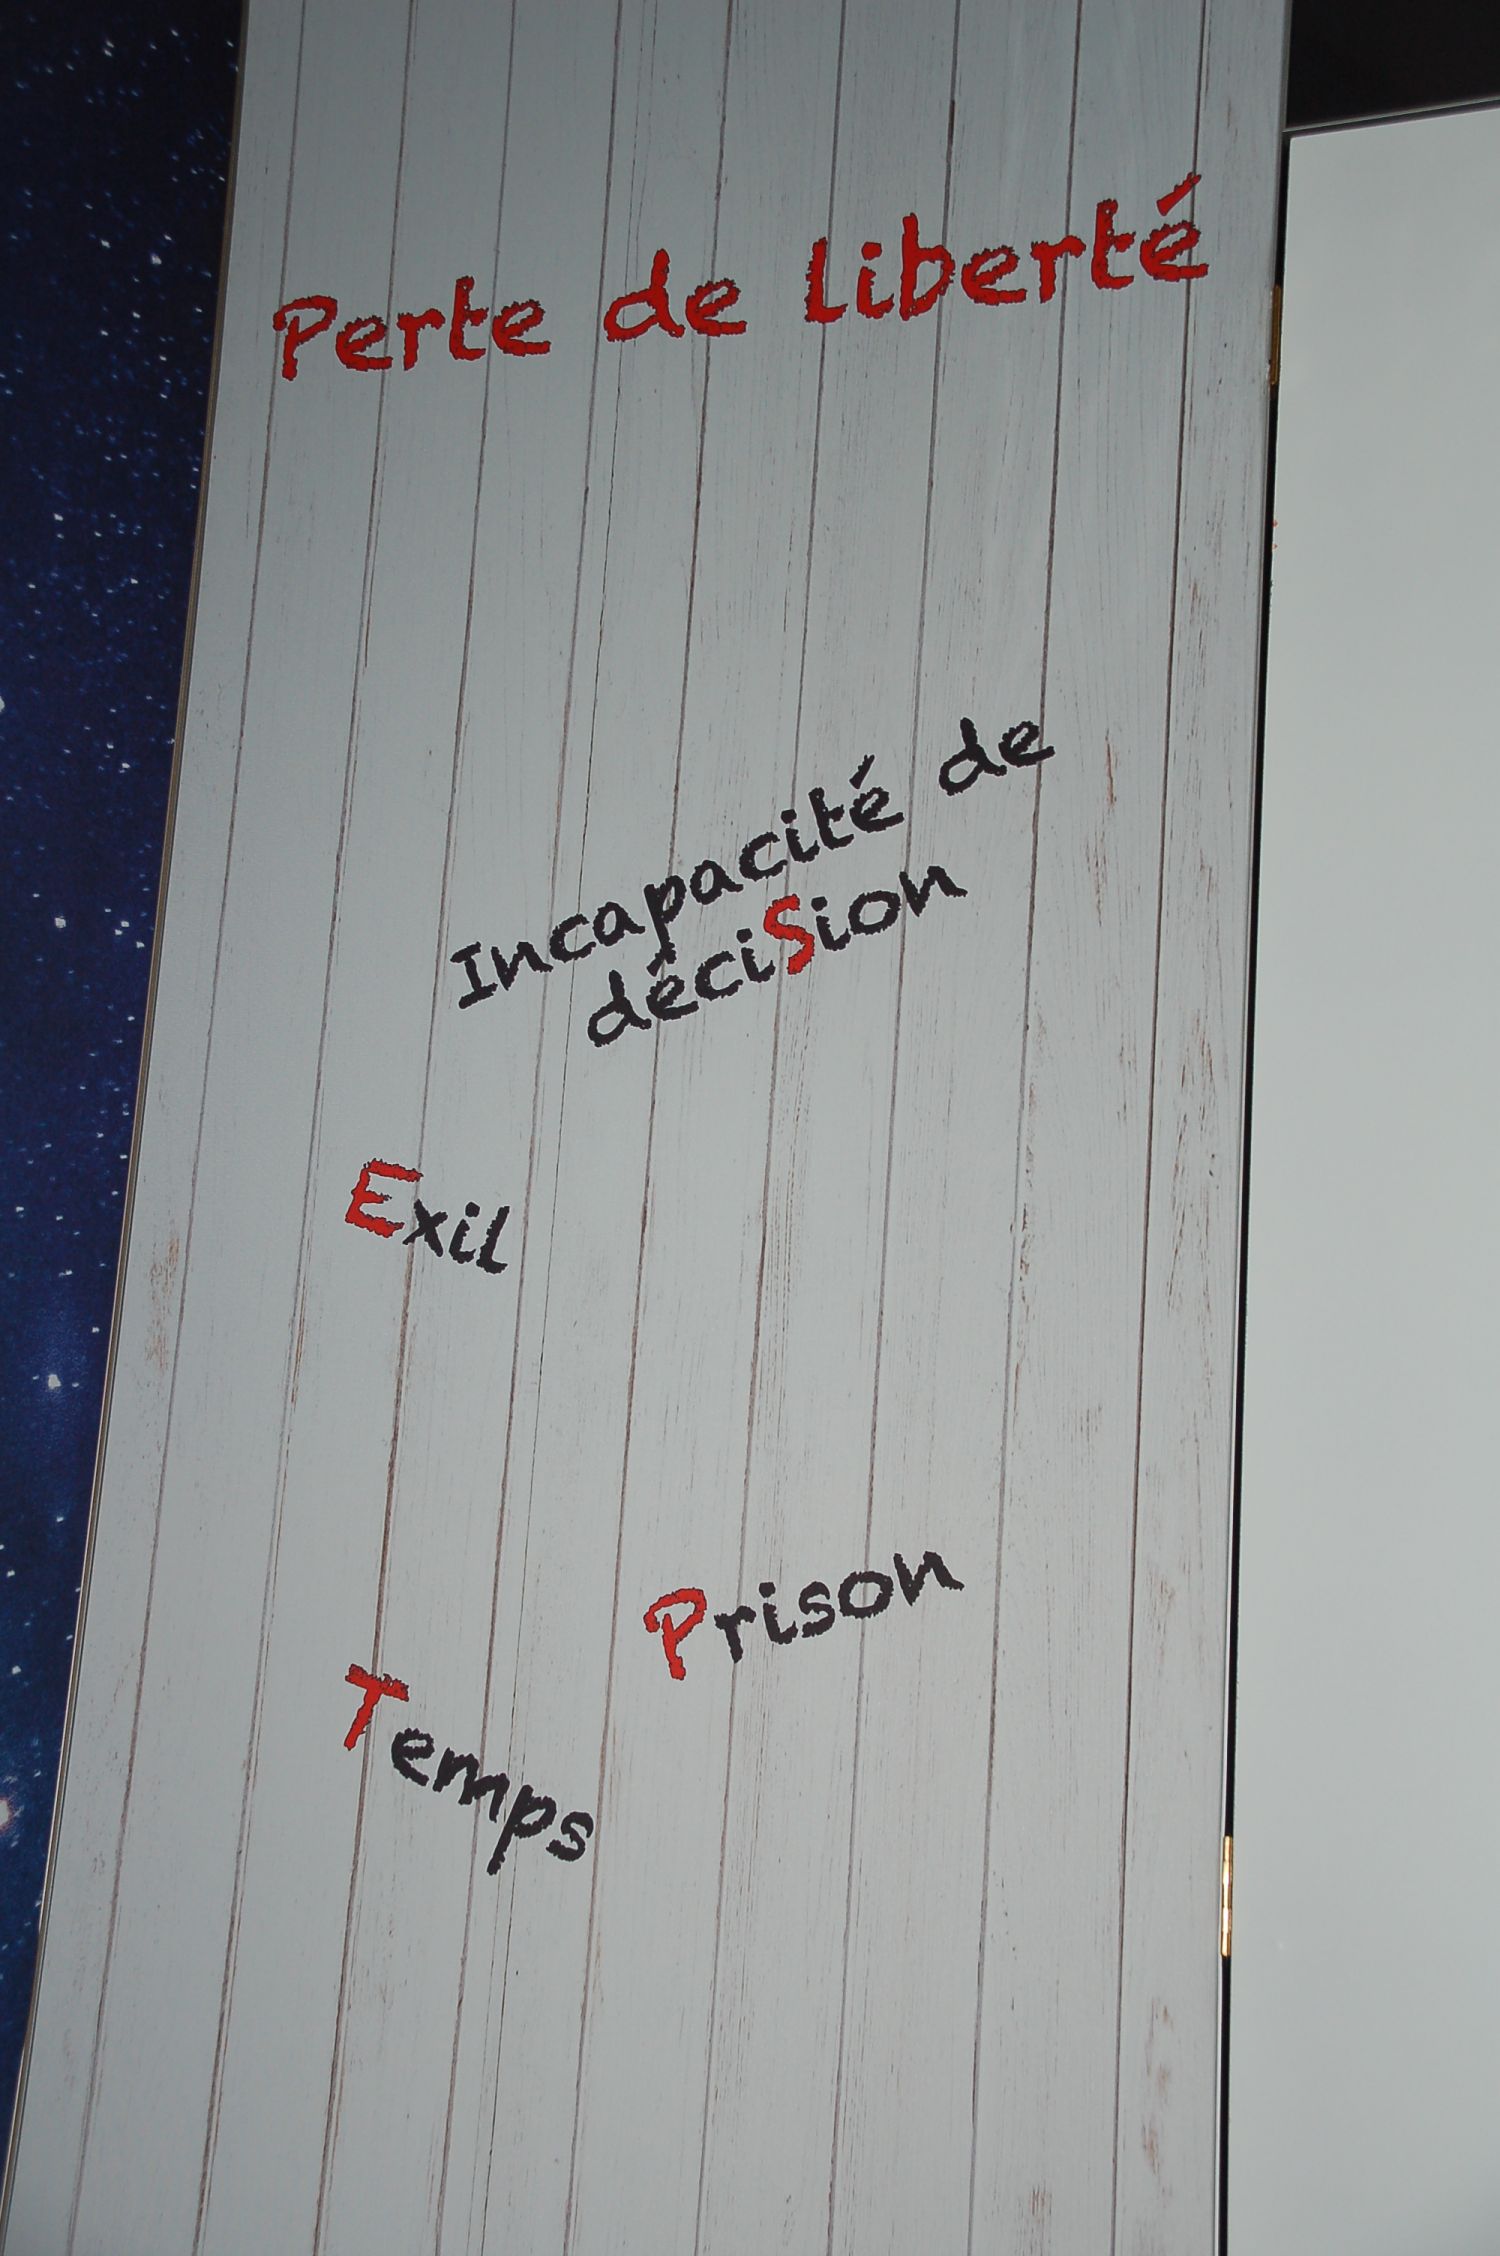 Perte de liberté
Incapacité de
déciSion
Exil
Prison
Temps